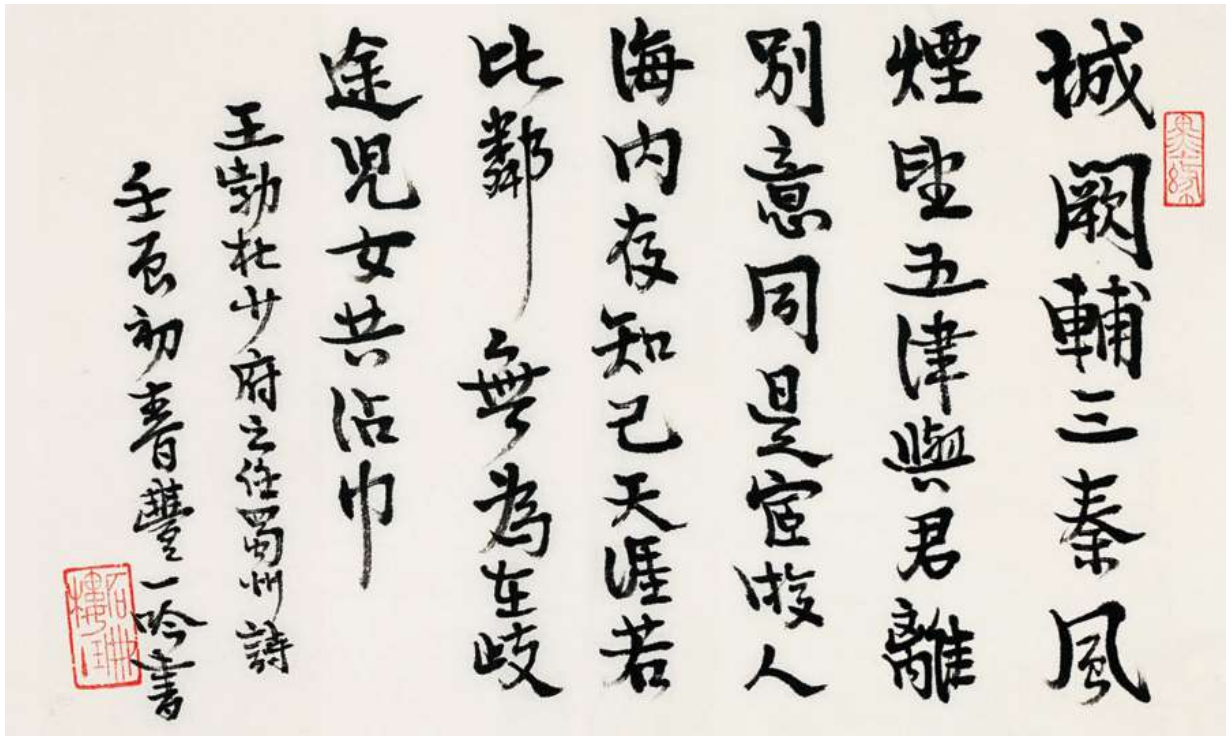 城闕輔三秦風
煙望五津與君離
別意同是宦游人
海內存知己天涯若
比鄰無為在歧
途兒女共沾巾
王勃杜少府之任蜀州詩
壬辰初春豐一吟書